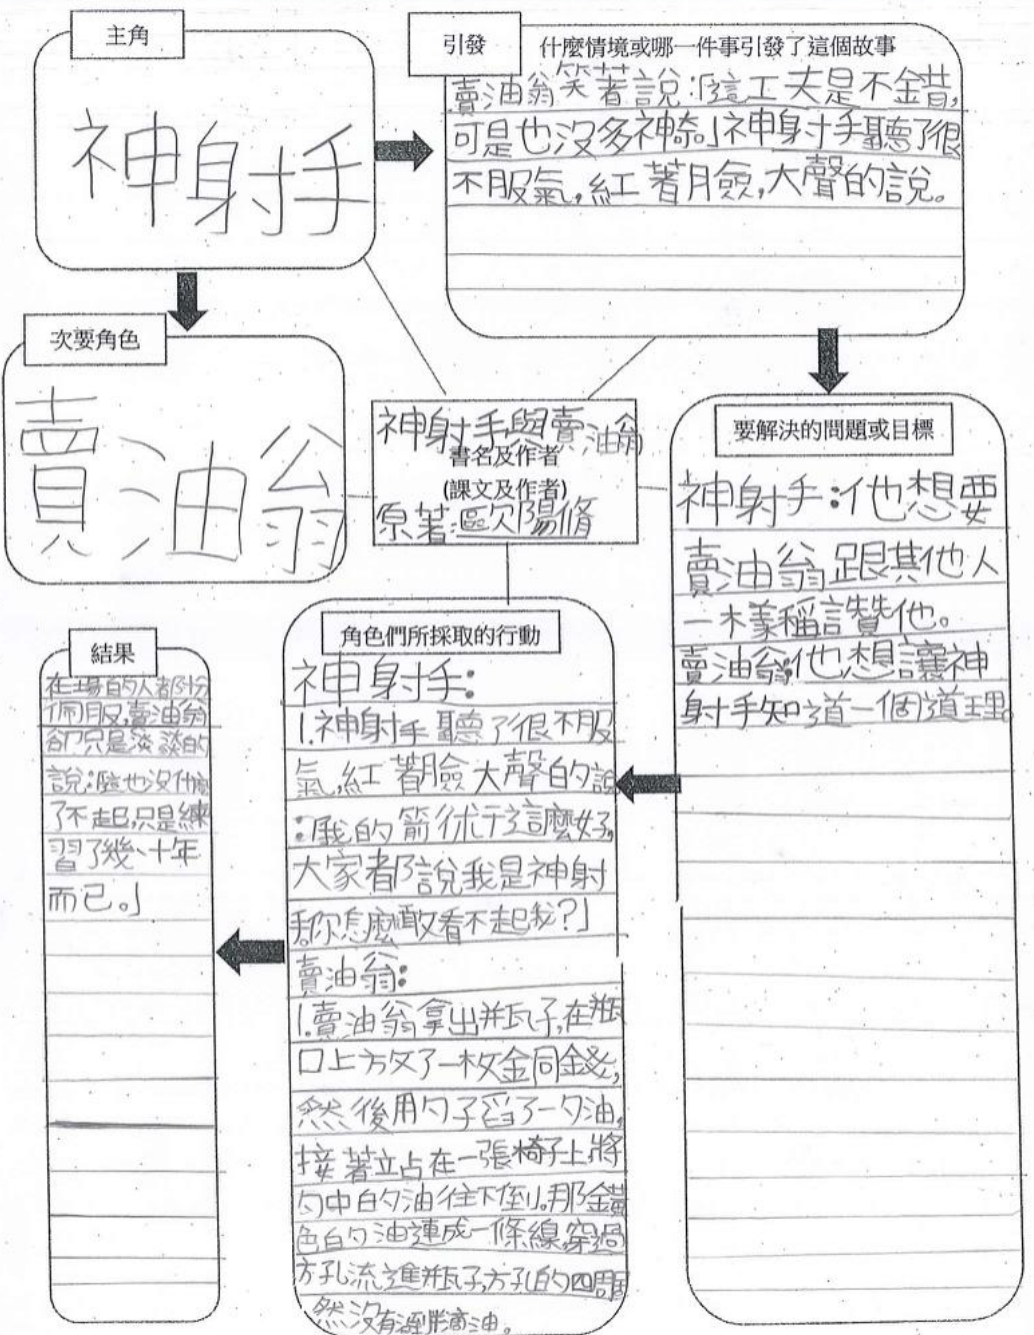 主角
神射手
引發
什麼情境或哪一件事引發了這個故事
賣油翁笑著說:「這工夫是不錯,
可是也沒多神奇。」神射手聽了很
不服氣,紅著臉,大聲的說。
次要角色
賣油翁
神射手與賣油翁
書名及作者
(課文及作者)
原著:歐陽脩
要解決的問題或目標
神射手:他想要
賣油翁跟其他人
一樣稱讚他。
賣油翁:他想讓神
射手知道一個道理。
角色們所採取的行動
神射手:
1.神射手聽了很不服
氣,紅著臉大聲的說
:「我的箭術這麼好,
大家都說我是神射
手,你怎麼敢看不起我?」
賣油翁:
1.賣油翁拿出瓶子,在瓶
口上方放了一枚金同錢,
然後用勺子舀了一勺油,
接著站在一張椅子上,將
勺中的油往下倒。那金黃
色的油連成一條線,穿過
方孔流進瓶子,方孔的四周
然沒有
油。
結果
在場的人都十分
佩服,賣油翁
卻只是淡淡的
說:「這也沒什麼
了不起,只是練
習了幾十年
而已。」